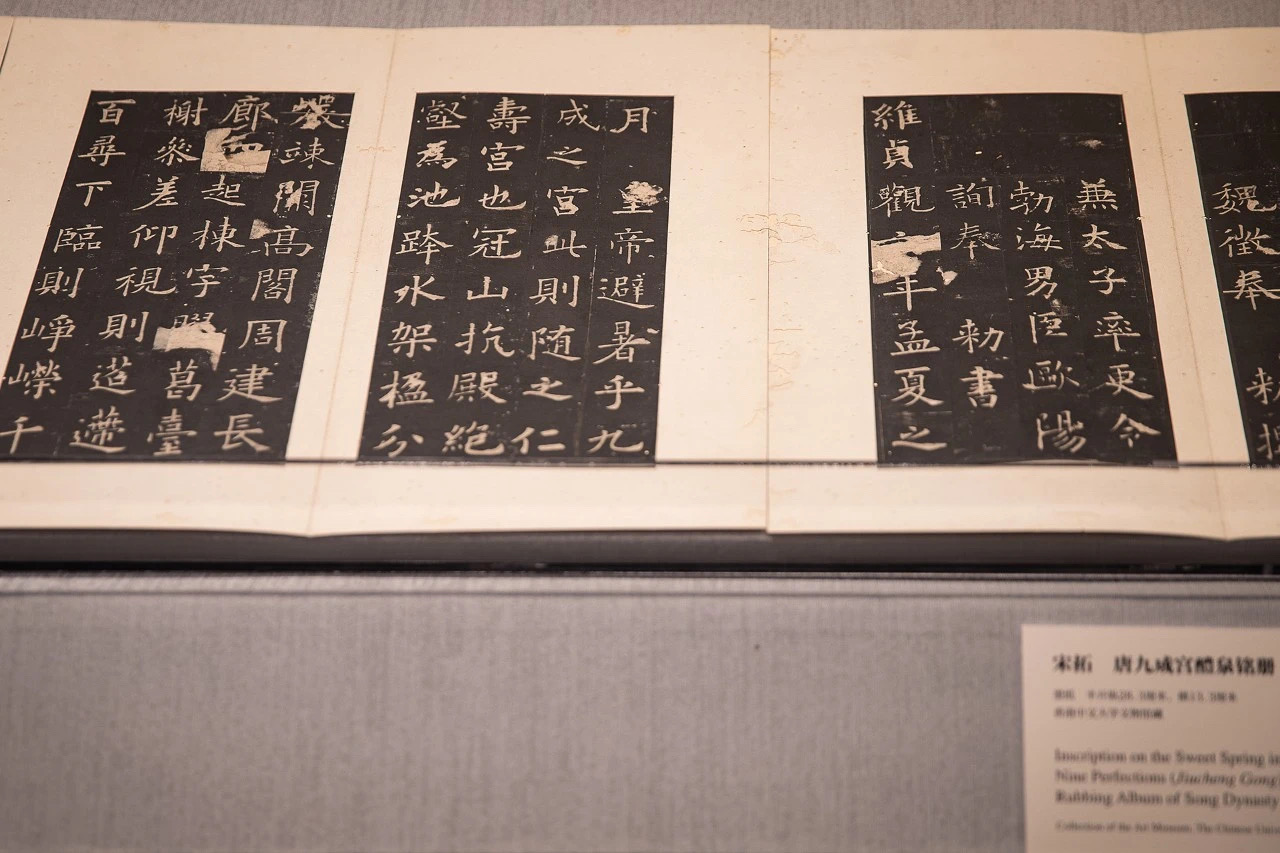 魏徵奉 勑撰
兼太子率更令
勃海男臣歐陽
詢奉 勑書
維貞觀年孟夏之
月 皇帝避暑乎九
成之宮此則随之仁
壽宮也冠山抗殿絕
壑為池跨水架楹分
巖竦闕高閣周建長
廊四起棟宇膠葛臺
榭參差仰視則迢遰
百尋下臨則崢嶸千
宋拓 唐九成宫醴泉铭册
香港中文大学文物馆藏
Inscription on the Sweet Spring in
Nine Perfections (Jiucheng Gong)
Rubbing Album of Song Dynasty
Collection of the Art Museum, The Chinese